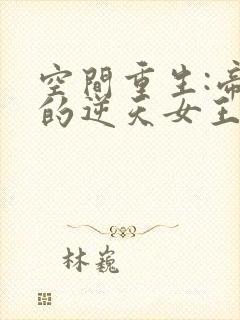 空間重生:帝
的逆天女王
林巍